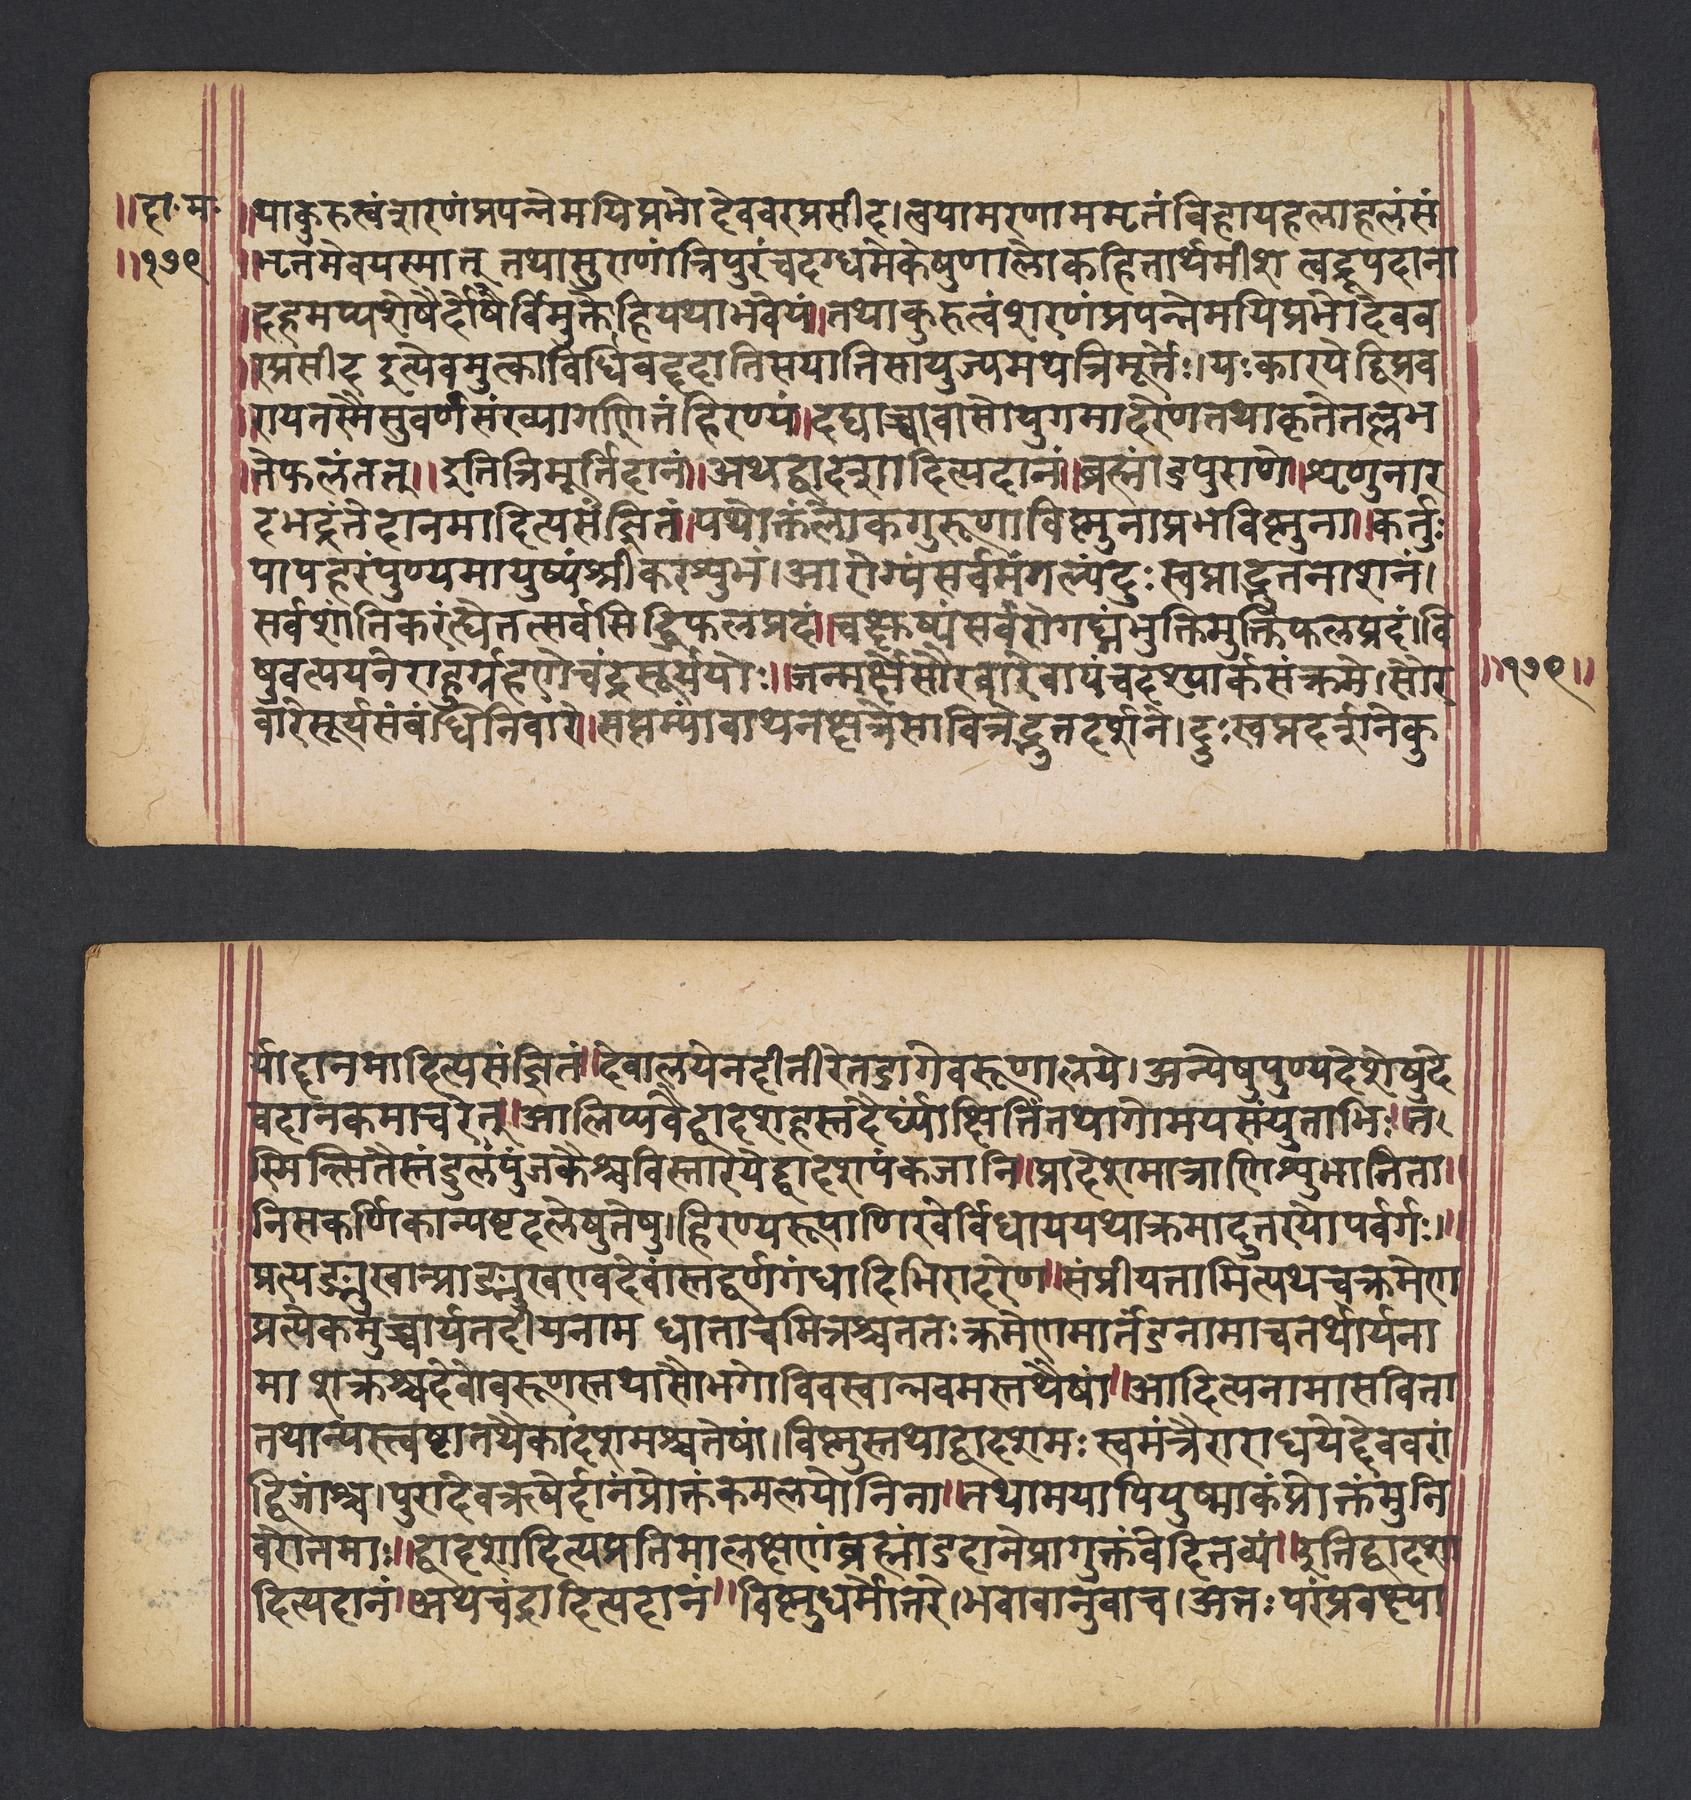 ॥दा॰म॰
॥१७९
॥थाकुरुत्वंशरणंप्रपन्नेमयिप्रभोदेववरप्रसीद।त्वयामराणाममृतंविहायहलाहलंसं
॥भृतमेवयस्मात् तथासुराणांत्रिपुरंचदग्धमेकेषुणालोकहितार्थमीश त्वद्रूपदाना
॥दहमप्यशेषैर्दोषैर्विमुक्तोहियथाभवेयं॥तथाकुरुत्वंशरणंप्रपन्नेमयिप्रभोदेवव
॥रप्रसीद इत्येवमुत्काविधिवद्ददातिसयातिसायुज्यमथत्रिमूर्त्तेः।यःकारयेद्विप्रव
॥रायतस्मैसुवर्णसंख्यागणितंहिरण्यं॥दद्याच्चवासोयुगमादरेणतथाकृतेतल्लभ
॥तेफलंतत्॥इतित्रिमूर्त्तिदानं॥अथद्वादशादित्यदानं॥ब्रह्मांडपुराणे॥शृणुनार
दभद्रंतेदानमादित्यसंज्ञितं॥यथोक्तंलोकगुरूणाविष्णुनाप्रभविष्णुना॥कर्तुः
पापहरंपुण्यमायुष्यंश्रीकरंशुभं।आरोग्यंसर्वमंगल्यंदुःस्वप्नाद्भुतनाशनं।
सर्वशांतिकरंत्द्येतत्सर्वसिद्धिफलप्रदं॥चक्षुष्यंसर्वरोगघ्नंभुक्तिमुक्तिफलप्रदं।वि
षुवत्ययनेराहुर्ग्रहणेचंद्रसूर्ययोः॥जन्मर्क्षेसौरवारेवापंचदश्यार्कसंक्रमे।सौर
॥१७९॥
वारेसूर्यसंबंधिनिवारे॥सप्तम्यांवाथनक्षत्रेसावित्रेद्भुतदर्शने।दुःस्वप्नदर्शनेकु
र्याद्दानमादित्यसंज्ञितं॥देवालयेनदीतीरेतडागेवरूणालये।अन्येषुपुण्यदेशेषुदे
वदानकमाचरेत्॥आलिप्यवैद्वादशहस्तदैर्घ्याक्षितिंतथागोमयसंयुताभिः॥त॰
स्मिन्सितैस्तंडुलपुंजकैश्चविस्तारयेद्द्वादशपंकजानि॥प्रादेशमात्राणिशुभानिता॥
निसकर्णिकान्यष्टदलेषुतेषु।हिरण्यरूपाणिरवेर्विधाययथाक्रमादुत्तरयोपवर्गः।॥
प्रत्यङ्मुखान्प्राङ्मुखएवदेवांस्तद्वर्णगंधादिभिरादरेण॥संप्रीयतामित्यथचक्रमेण
प्रत्येकमुच्चार्यतदीयनाम धाताचमित्रश्चततःक्रमेणमार्तंडनामाचतर्थार्यना
मा शक्रश्चदेवोवरूणस्तथासौभगोविवस्वान्नवमस्तथैषां॥आदित्यनामासविता
तथान्यस्त्वष्टातथैकादशमश्चतेषां।विष्णुस्तथाद्वादशमःस्वमंत्रैराराधयेद्देववरां
द्विजांश्च।पुरादेवऋषेर्दानंप्रोक्तंकमलयोनिना॥तथामयापियुष्माकंप्रोक्तंमुनि
वरोत्तमाः॥द्वादशादित्यप्रतिमालक्षणंब्रह्मांडदानेप्रागुक्तंवेदितव्यं॥इतिद्वादशा
दित्यदानं॥अथचंद्रादित्यदानं॥विष्णुधर्मोत्तरे।भवावानुवाच।अतःपरंप्रवक्ष्या